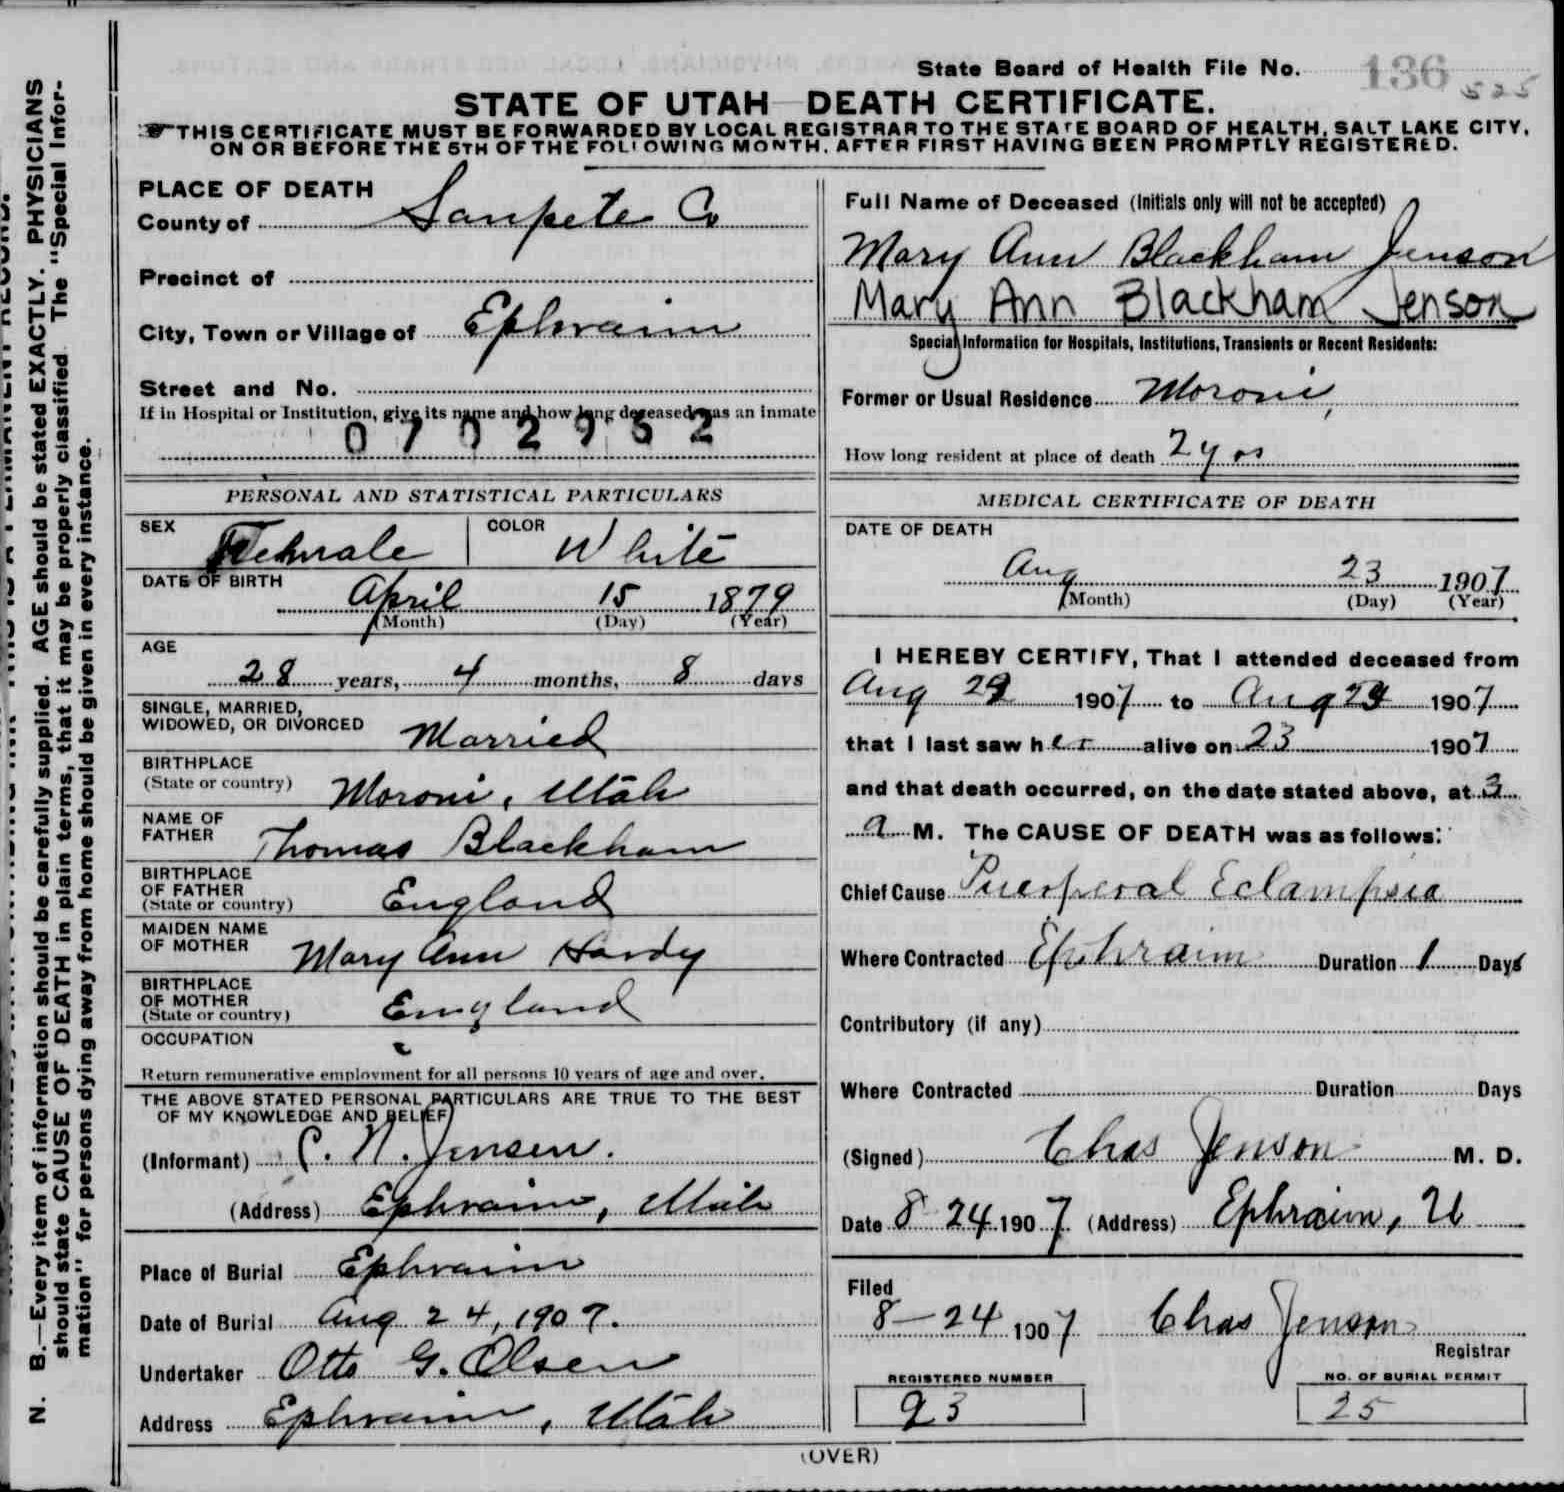 State Board of Health File No. 136 525
STATE OF UTAH DEATH CERTIFICATE.
THIS CERTIFICATE MUST BE FORWARDED BY LOCAL REGISTRAR TO THE STATE BOARD OF HEALTH, SALT LAKE CITY,
ON OR BEFORE THE 5TH OF THE FOLLOWING MONTH, AFTER FIRST HAVING BEEN PROMPTLY REGISTERED.
PLACE OF DEATH
County of Sanpete Co
Precinct of
City, Town or Village of Ephraim
Street and No.
If in Hospital or Institution, give its name and how long deceased was an inmate
0702952
PERSONAL AND STATISTICAL PARTICULARS
SEX Female COLOR White
DATE OF BIRTH
April 15 1879
(Month) (Day) (Year)
AGE
28 years, 4 months, 8 days
SINGLE, MARRIED,
WIDOWED, OR DIVORCED Married
BIRTHPLACE
(State or country) Moroni, Utah
NAME OF
FATHER Thomas Blackham
BIRTHPLACE
OF FATHER
(State or country) England
MAIDEN NAME
OF MOTHER Mary Ann Hardy
BIRTHPLACE
OF MOTHER
(State or country) England
OCCUPATION
Return remunerative employment for all persons 10 years of age and over.
THE ABOVE STATED PERSONAL PARTICULARS ARE TRUE TO THE BEST
OF MY KNOWLEDGE AND BELIEF
(Informant) C. N. Jensen.
(Address) Ephraim, Utah
Place of Burial Ephraim
Date of Burial Aug 24, 1907.
Undertaker Otto G. Olsen
Address Ephraim, Utah
Full Name of Deceased (Initials only will not be accepted)
Mary Ann Blackham Jenson
Mary Ann Blackham Jenson
Special Information for Hospitals, Institutions, Transients or Recent Residents:
Former or Usual Residence Moroni,
How long resident at place of death 2 yrs
MEDICAL CERTIFICATE OF DEATH
DATE OF DEATH
Aug 23 1907
(Month) (Day) (Year)
I HEREBY CERTIFY, That I attended deceased from
Aug 1907 to Aug 1907
that I last saw her alive on 23 1907
and that death occurred, on the date stated above, at 3
a M. The CAUSE OF DEATH was as follows:
Chief Cause Puerperal Eclampsia
Where Contracted Ephraim Duration 1 Days
Contributory (if any)
Where Contracted Duration Days
(Signed) Chas Jenson M. D.
Date 8 24 1907 (Address) Ephraim, U
Filed
8-24 1907 Chas Jenson
Registrar
REGISTERED NUMBER
23
NO. OF BURIAL PERMIT
25
(OVER)
N. B.—Every item of information should be carefully supplied. AGE should be stated EXACTLY. PHYSICIANS
should state CAUSE OF DEATH in plain terms, that it may be properly classified. The "Special Infor-
mation" for persons dying away from home should be given in every instance.